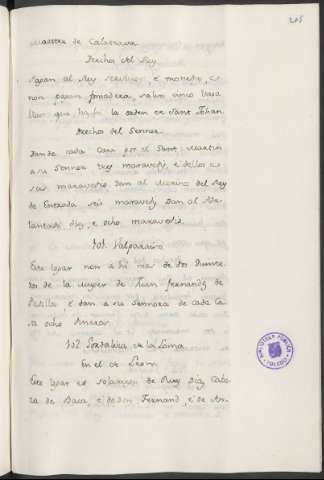 205
Maestre de Calatrava
Derechos del Rey
Pagan al Rey servicios, e moneda, e
non pagan fonsadera, salvo cinco Vasa
llos que ha hi la orden de Sant Johan
Derechos del Sennor
Dan de cada casa por el Sant Martin
a su Sennor tres maravedis, e dellos a
seis maravedis. Dan al Merino del Rey
de Entrada seis maravedis Dan al Ade
lantado diez, e ocho maravedis.
101 Valparaiso
Este logar non a hi mas de dos
de la muger de Juan fernandez de
Padilla e dan a su Sennora de cada Ca
sa ocho
102 de la Loma
En el de Leon
Este logar es solariego de Ruy diaz Cabe
za de Baca, e de don Fernand, e de An-
BIBLIOTECA PÚBLICA
TOLEDO